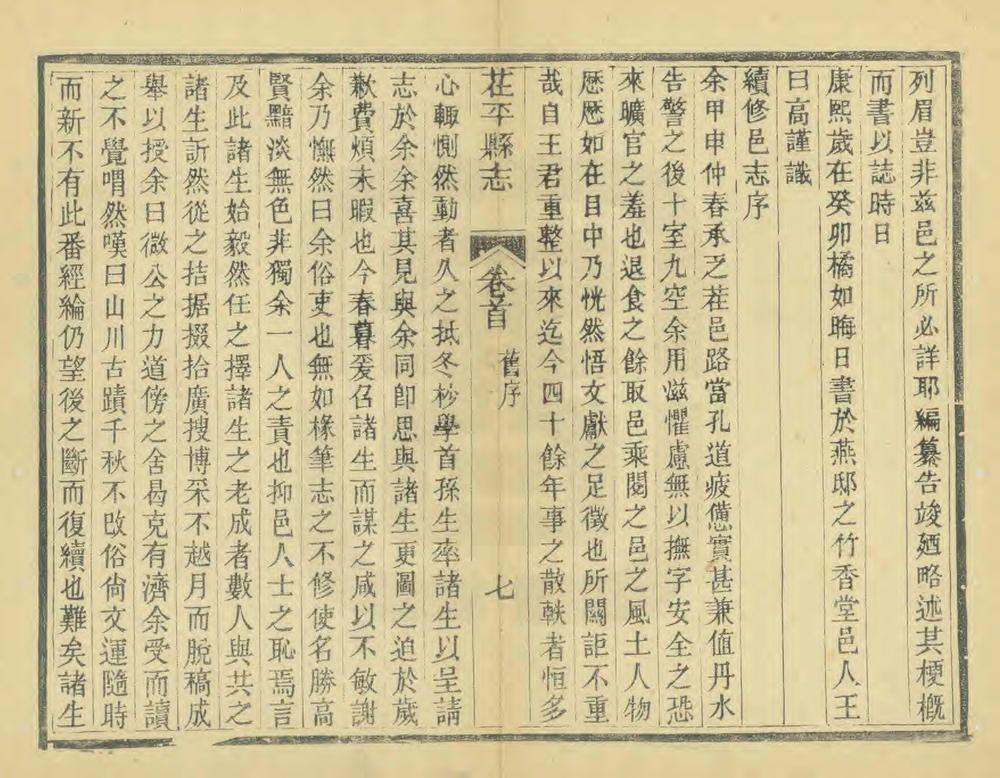 列眉豈非兹邑之所必詳耶編纂告竣廼略述其梗槪
而書以誌時日
康熙歲在癸卯橘如晦日書於燕邸之竹香堂邑人王
曰高謹識
續修邑志序
余甲申仲春承乏茌邑路當孔道疲憊實甚兼值丹水
告警之後十室九空余用滋懼慮無以撫字安全之恐
來曠官之羞也退食之餘取邑乘閱之邑之風土人物
歷歷如在目中乃恍然悟文獻之足徵也所關詎不重
哉自王君重整以來迄今四十餘年事之散軼者恒多
茌平縣志
卷首
舊序
七
心輙惻然動者久之抵冬杪學首孫生率諸生以呈請
志於余余喜其見與余同卽思與諸生更圖之迫於歲
歉費煩未暇也今春暮爰召諸生而謀之咸以不敏謝
余乃憮然曰余俗吏也無如椽筆志之不修使名勝高
賢黯淡無色非獨余一人之責也抑邑人士之恥焉言
及此諸生始毅然任之擇諸生之老成者數人與共之
諸生訢然從之拮据掇拾廣搜博采不越月而脫稿成
舉以授余曰微公之力道傍之舍曷克有濟余受而讀
之不覺喟然嘆曰山川古蹟千秋不改俗尙文運隨時
而新不有此番經綸仍望後之斷而復續也難矣諸生